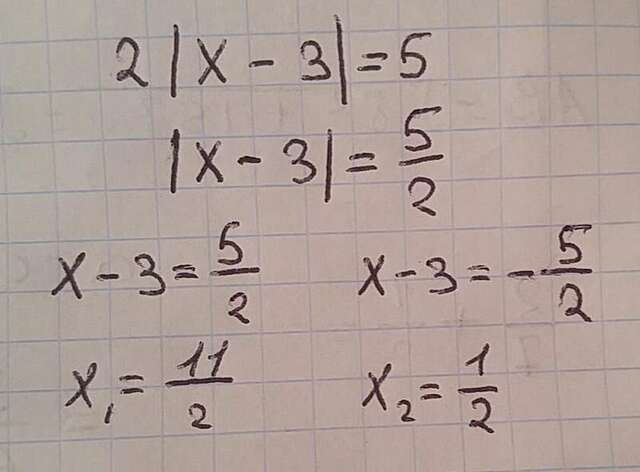 2|x - 3| = 5
|x - 3| = 5/2
x - 3 = 5/2    x - 3 = -5/2
x₁ = 11/2    x₂ = 1/2